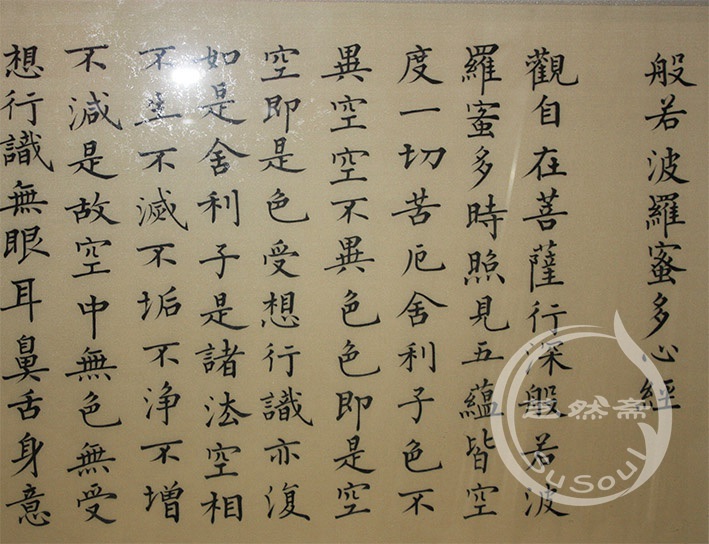 般若波羅蜜多心經
觀自在菩薩行深般若波
羅蜜多時照見五蘊皆空
度一切苦厄舍利子色不
異空空不異色色即是空
空即是色受想行識亦復
如是舍利子是諸法空相
不生不滅不垢不浄不增
不減是故空中無色無受
想行識無眼耳鼻舌身意
然斋
SuSoul